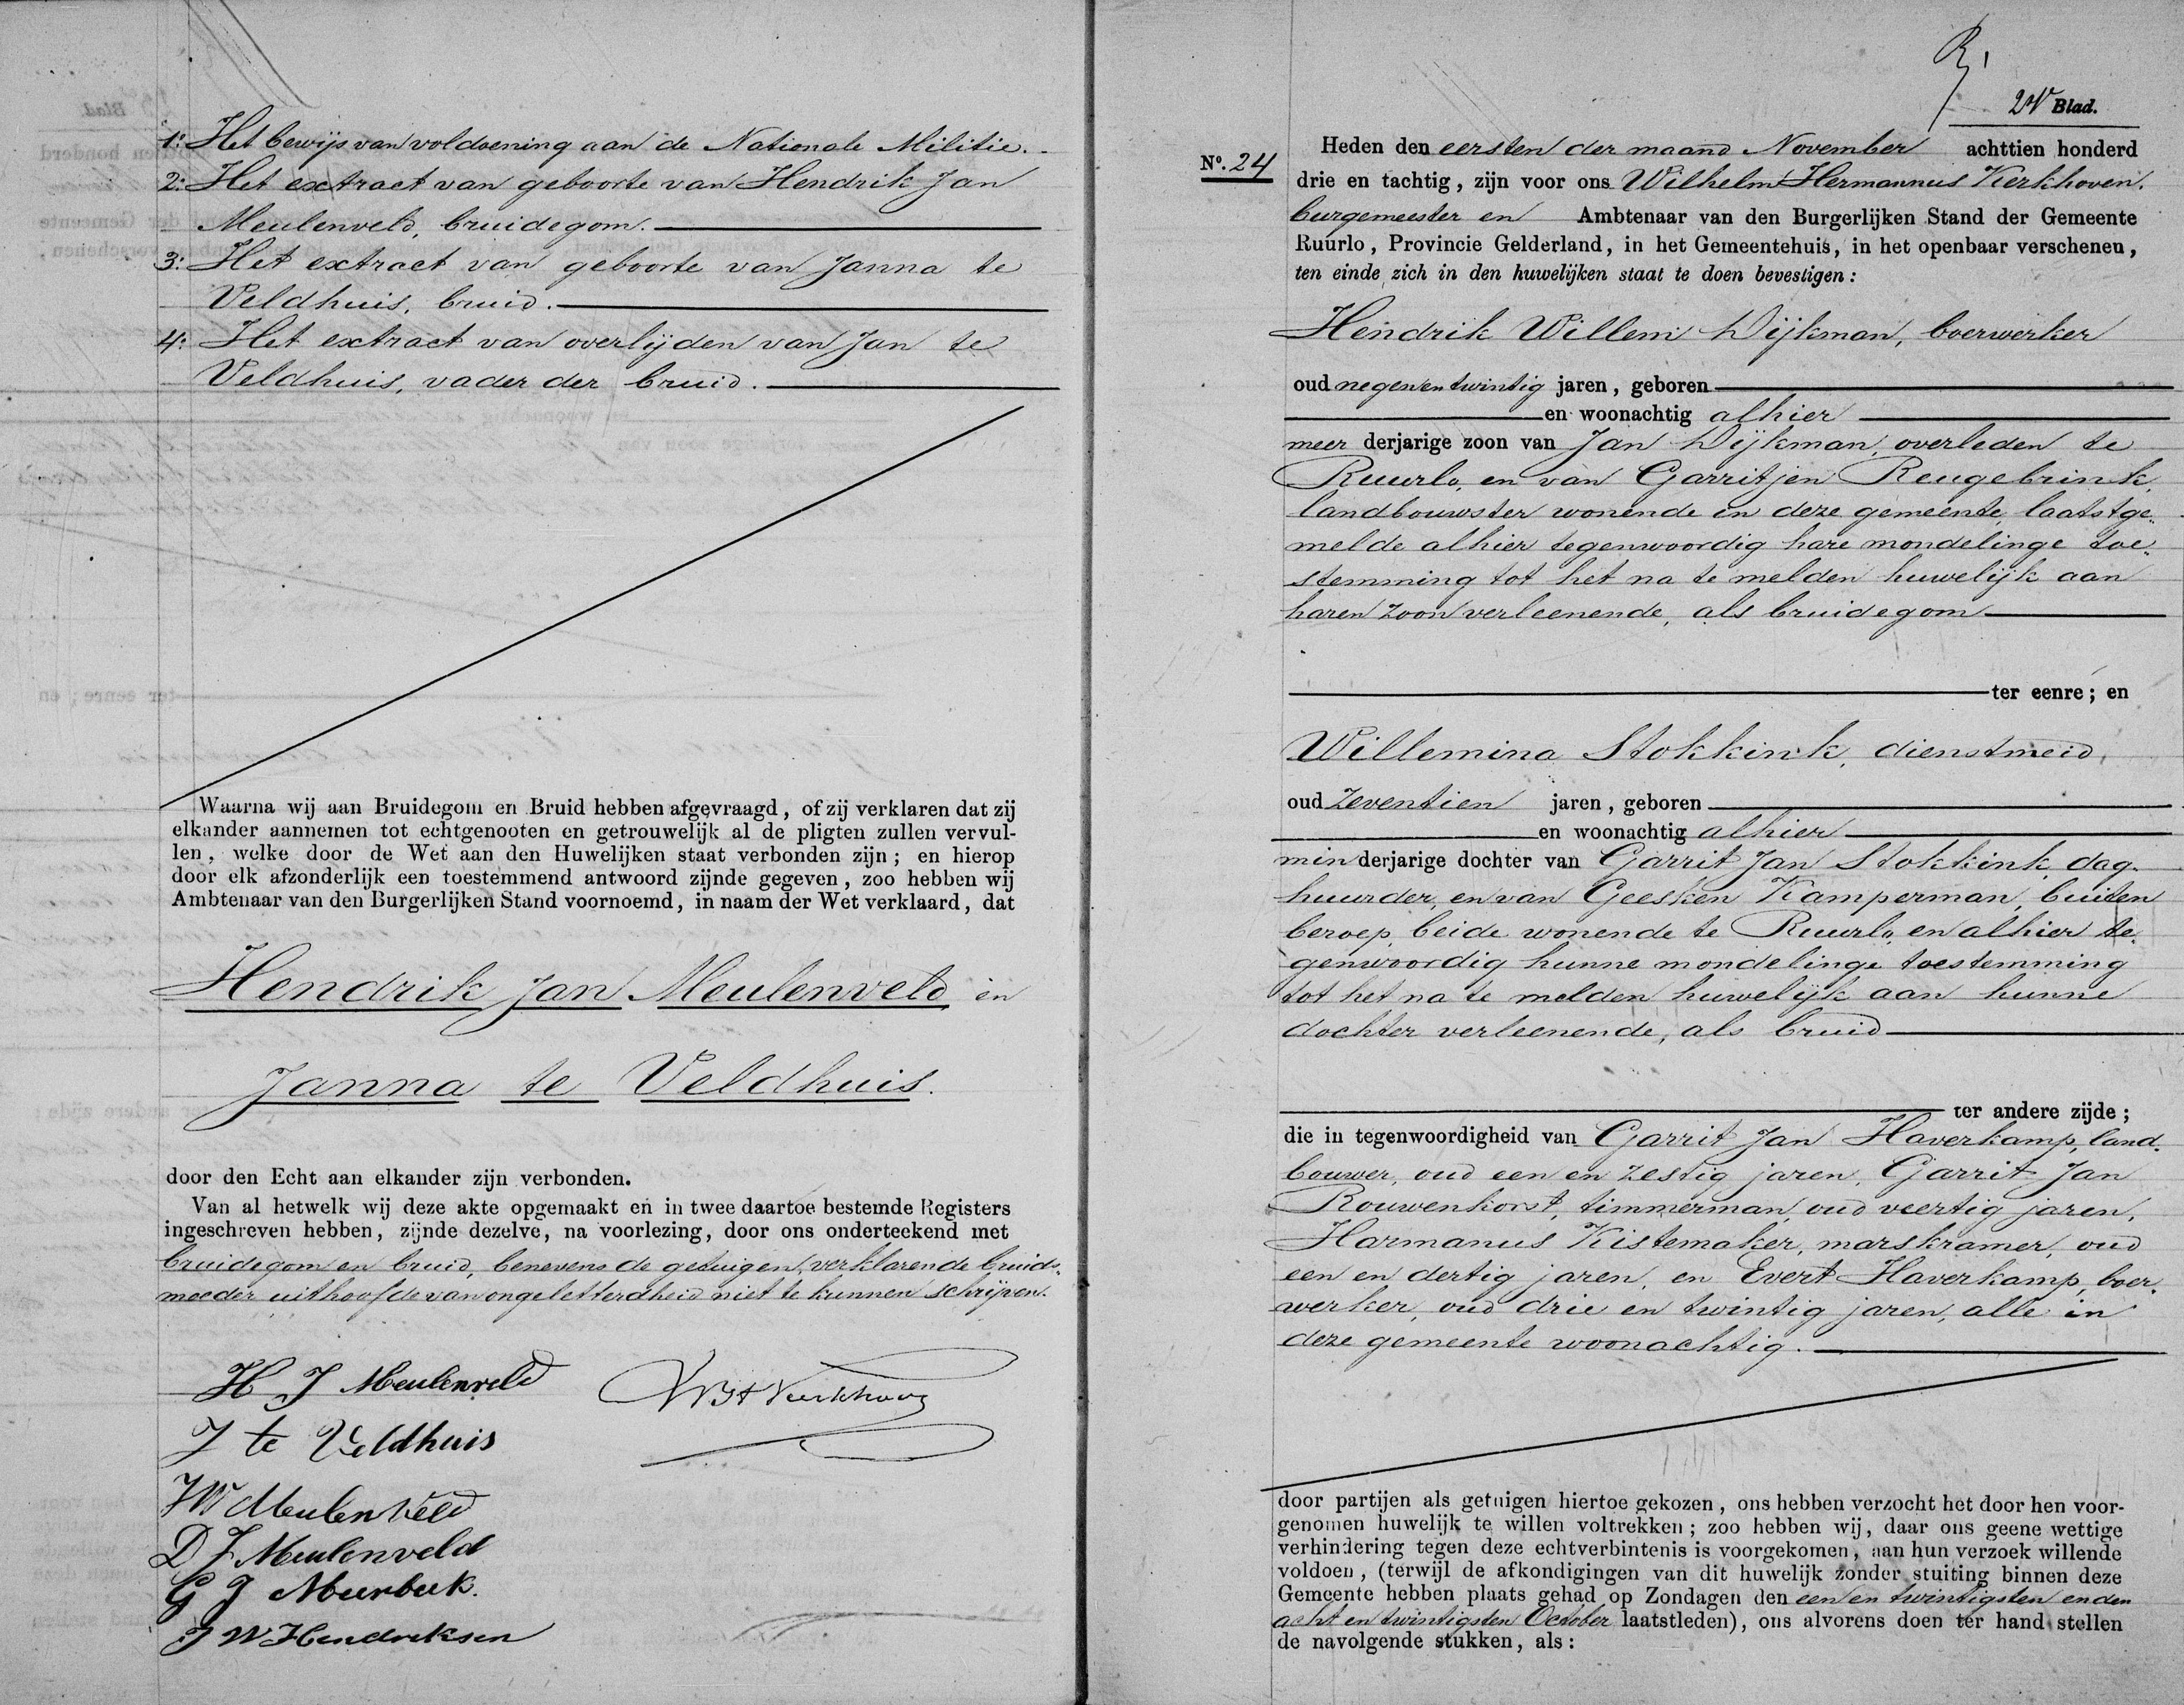 1: Het bewijs van voldoening aan de Nationale Militie.
2: Het extract van geboorte van Hendrik Jan
Meulenveld, bruidegom.
3: Het extract van geboorte van Janna te
Veldhuis, bruid.
4: Het extract van overlijden van Jan te
Veldhuis, vader der bruid.
Waarna wij aan Bruidegom en Bruid hebben afgevraagd, of zij verklaren dat zij
elkander aannemen tot echtgenooten en getrouwelijk al de pligten zullen vervul-
len, welke door de Wet aan den Huwelijken staat verbonden zijn; en hierop
door elk afzonderlijk een toestemmend antwoord zijnde gegeven, zoo hebben wij
Ambtenaar van den Burgerlijken Stand voornoemd, in naam der Wet verklaard, dat
Hendrik Jan Meulenveld en
Janna te Veldhuis.
door den Echt aan elkander zijn verbonden.
Van al hetwelk wij deze akte opgemaakt en in twee daartoe bestemde Registers
ingeschreven hebben, zijnde dezelve, na voorlezing, door ons onderteekend met
bruidegom en bruid, benevens de getuigen, verklarende bruids-
moeder uithoofde van ongeletterdheid niet te kunnen schrijven.
H J Meulenveld
J te Veldhuis
JW Meulenveld
D J Meulenveld
G J Meerbeek.
J W Hendreksen
Blad.
No. 24 Heden den eersten der maand November achttien honderd
drie en tachtig, zijn voor ons Wilhelm Hermannus Kerkhoven,
burgemeester en Ambtenaar van den Burgerlijken Stand der Gemeente
Ruurlo, Provincie Gelderland, in het Gemeentehuis, in het openbaar verschenen,
ten einde zich in den huwelijken staat te doen bevestigen:
Hendrik Willem Dijkman, boerwerker
oud negenentwintig jaren, geboren
en woonachtig alhier
meer derjarige zoon van Jan Dijkman, overleden te
Ruurlo, en van Garritjen Reugebrink,
landbouwster wonende in deze gemeente, laatstge-
melde alhier tegenwoordig hare mondelinge toe-
stemming tot het na te melden huwelijk aan
haren zoon verleenende, als bruidegom
ter eenre; en
Willemina Stokkink, dienstmeid,
oud zeventien jaren, geboren
en woonachtig alhier
min derjarige dochter van Garrit Jan Stokkink, dag-
huurder, en van Geesken Kamperman, buiten
beroep, beide wonende te Ruurlo, en alhier te-
genwoordig hunne mondelinge toestemming
tot het na te melden huwelijk aan hunne
dochter verleenende, als bruid
ter andere zijde;
die in tegenwoordigheid van Garrit Jan Haverkamp, land-
bouwer, oud een en zestig jaren, Garrit Jan
Rouwenhorst, timmerman, oud veertig jaren,
Harmanus Kistemaker, marskramer, oud
een en dertig jaren, en Evert Haverkamp, boer-
werker, oud drie en twintig jaren, alle in
deze gemeente woonachtig.
door partijen als getuigen hiertoe gekozen, ons hebben verzocht het door hen voor-
genomen huwelijk te willen voltrekken; zoo hebben wij, daar ons geene wettige
verhindering tegen deze echtverbintenis is voorgekomen, aan hun verzoek willende
voldoen, (terwijl de afkondigingen van dit huwelijk zonder stuiting binnen deze
Gemeente hebben plaats gehad op Zondagen den een en twintigsten en den
acht en twintigsten October laatstleden), ons alvorens doen ter hand stellen
de navolgende stukken, als: